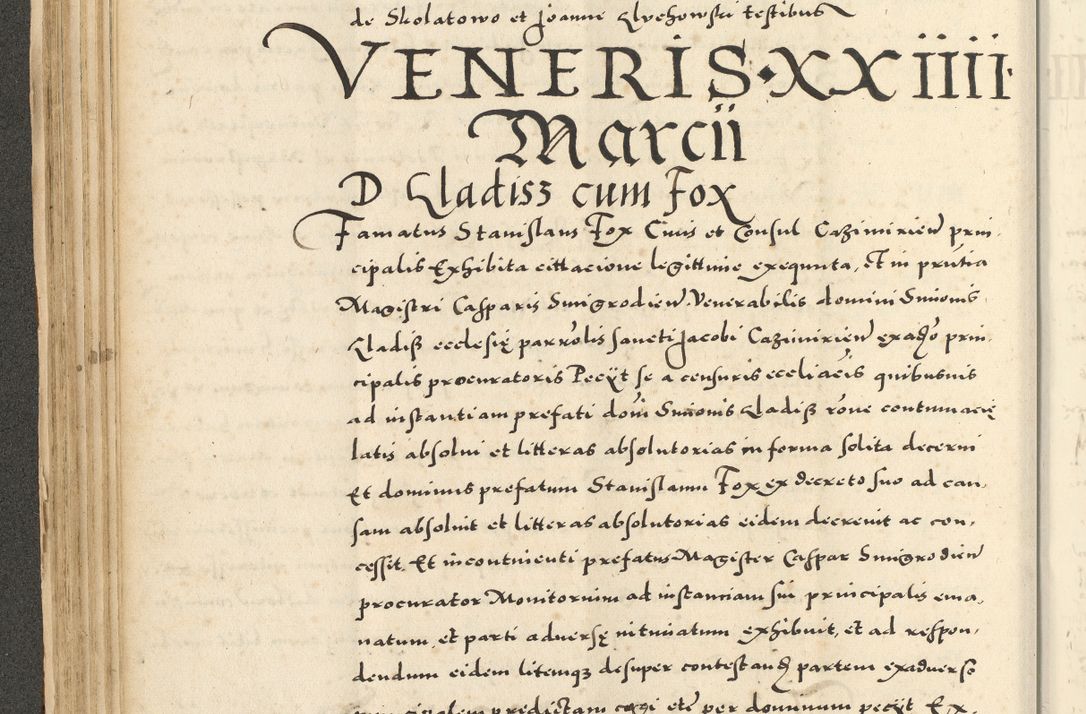 de Skolatowo et Joanne Lyehowski testibus
VENERIS · XXIIII ·
Marcii
D Gladisz cum Fox
Famatus Stanislaus Fox Civis et Consul Cazimirien prin,
cipalis Exhibita cittacione legittime exequuta, Et in prntia
Magistri Casparis Smigrodien Venerabilis domini Simonis
Gladisz ecclesię parrolis sancti Jacobi Cazimirien prin,
cipalis procuratoris Pecyt se a censuris quibusuis
ad instantiam prefati domi Simonis Gladisz rone contumacię
latis absolui et litteras absolutorias in forma solita decerni
Et dominus prefatum Stanislaum Fox ex decreto suo ad cau,
sam absoluit et litteras absolutorias eidem decreuit ac con,
cessit. Et incontinenti prefatus Magister Caspar Smigrodien
procurator Monitorium ad instanciam sui principalis ema,
natum, et parti adversę intimatum exhibuit, et ad respon,
dendum eidem litemqz desuper contestandum partem ex adverso
principalem predictam cogi etc per dominum pecyt Ex,